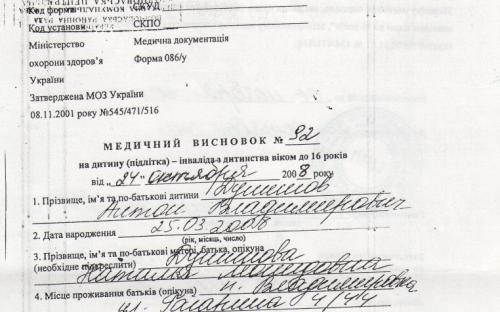 Код форми СКУД
Код установи СКПО
Міністерство Медична документація
охорони здоров'я Форма 086/у
України
Затверджена МОЗ України
08.11.2001 року №545/471/516
МЕДИЧНИЙ ВИСНОВОК № 92
на дитину (підлітка) – інваліда з дитинства віком до 16 років
від „24" октября 2008 року
1. Прізвище, ім'я та по-батькові дитини
Антон Владимирович
2. Дата народження 25.03.2008
(рік, місяць, число)
3. Прізвище, ім'я та по-батькові матері, батька, опікуна
(необхідне підкреслити)
Наталья
4. Місце проживання батьків (опікуна) п. Владимировка
ул. Гагарина 4/44